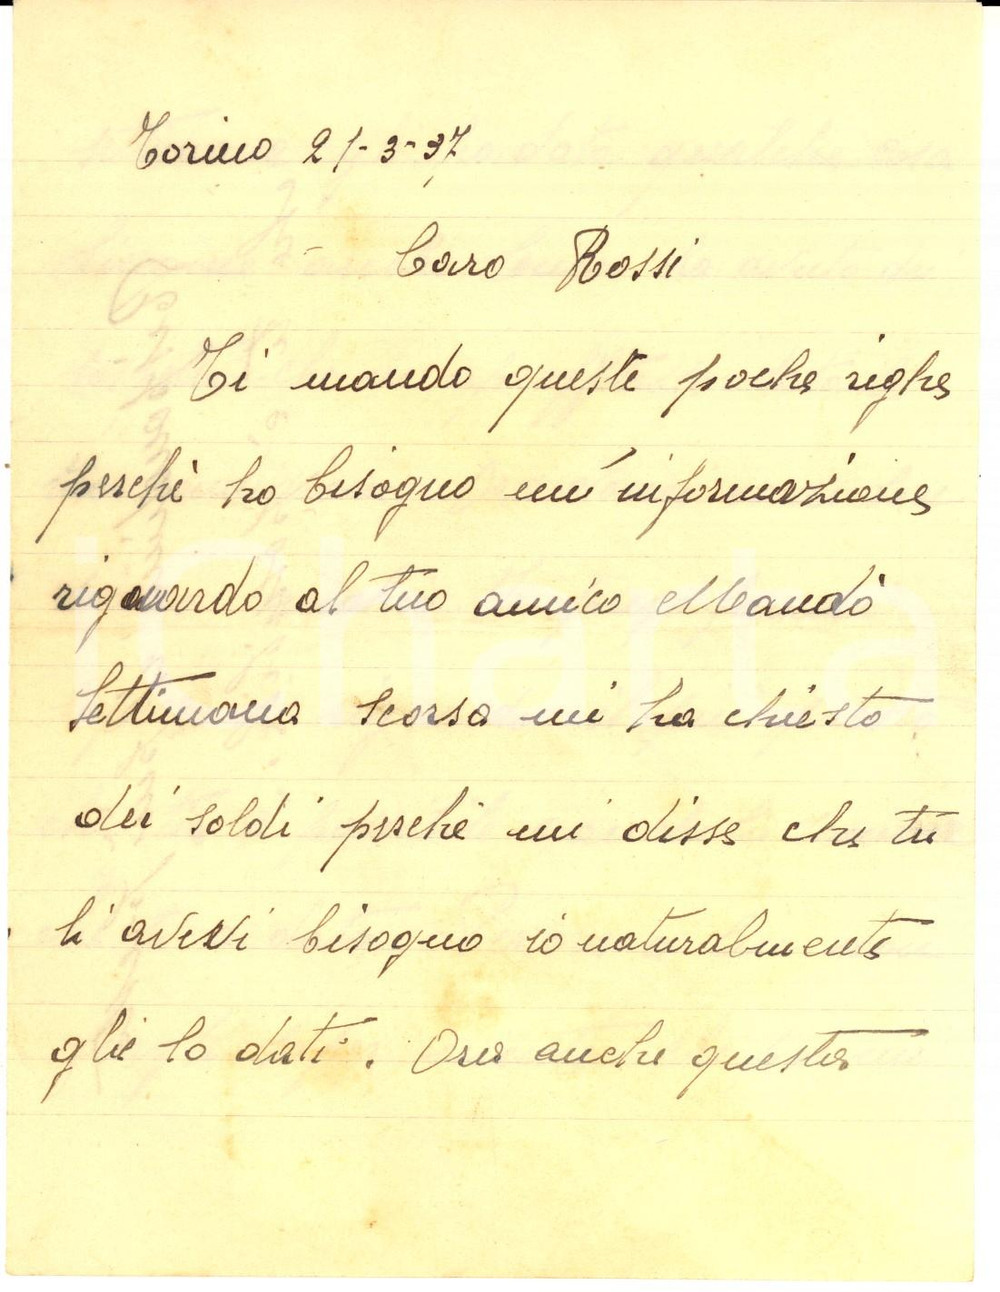 Torino 21-3-37
Caro Rossi
Ti mando queste poche righe
perchè ho bisogno un'informazione
riguardo al tuo amico Mandò
Settimana scorsa mi ha chiesto
dei soldi perchè mi disse che tu
li avevi bisogno io naturalmente
glie lo dati. Ora anche questa
iCharta